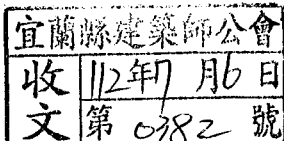 宜蘭縣建築師公會
收文
112年7月6日
第0382號